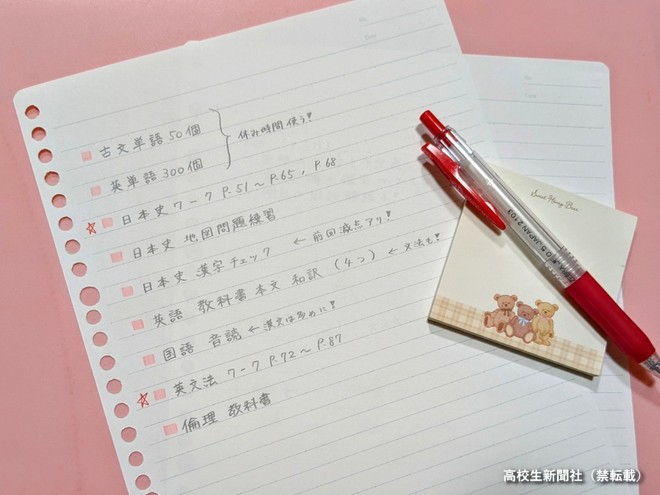 古文単語50個
英単語300個
休み時間使う!
☆日本史 ワーク P.51〜P.65, P.68
日本史 地図問題練習
日本史 漢字チェック ←前回減点アリ!
英語 教科書本文 和訳 (4つ) ←文法も!
国語 音読 ←漢文は多めに!
☆英文法 ワーク P.72〜P.87
倫理 教科書
Sweet Honey Bear
JAPAN 2103
高校生新聞社(禁転載)